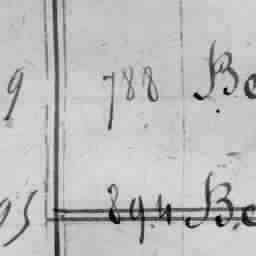 9 788 Be
95 894 Be